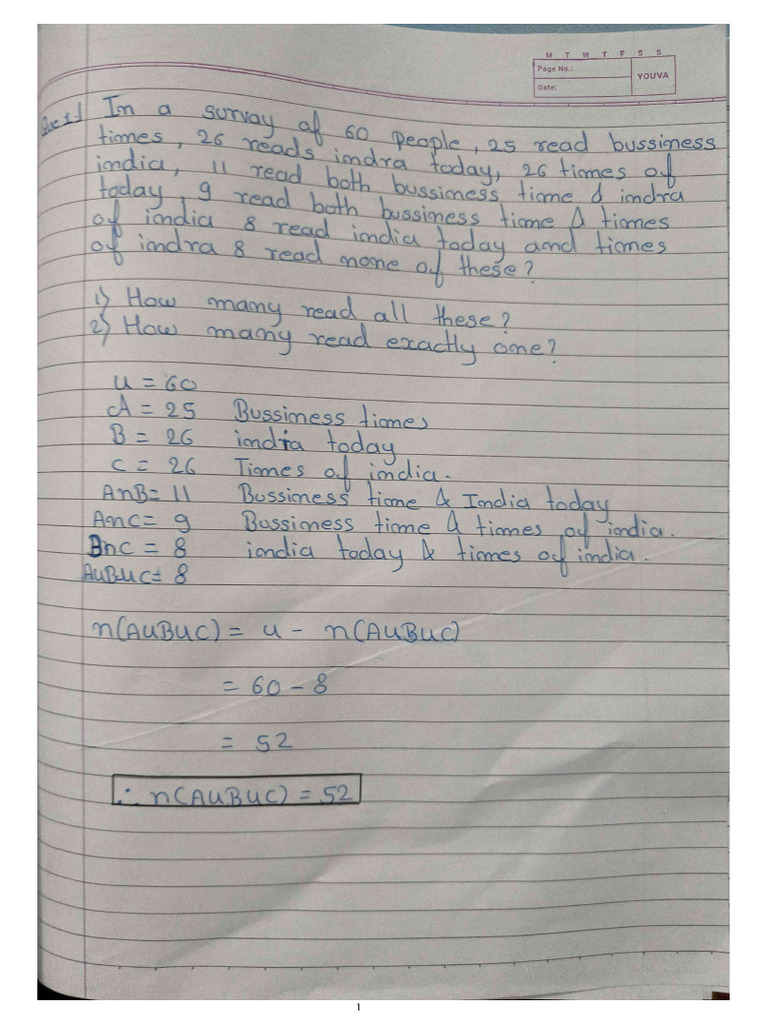 M T W T F S S
Page No.:
YOUVA
Date:
Que 1.) In a survay of 60 people, 25 read bussiness
times, 26 reads indra today, 26 times of
india, 11 read both bussiness time & indra
today, 9 read both bussiness time & times
of india 8 read india today and times
of indra 8 read none of these?
1) How many read all these?
2) How many read exactly one?
u = 60
A = 25 Bussiness times
B = 26 india today
C = 26 Times of india.
AnB= 11 Bussiness time & India today
AnC= 9 Bussiness time & times of india.
BnC = 8 india today & times of india.
AuBuC= 8
n(AUBUC) = u - n(AUBUC)
= 60 - 8
= 52
∴ n(AUBUC) = 52
1